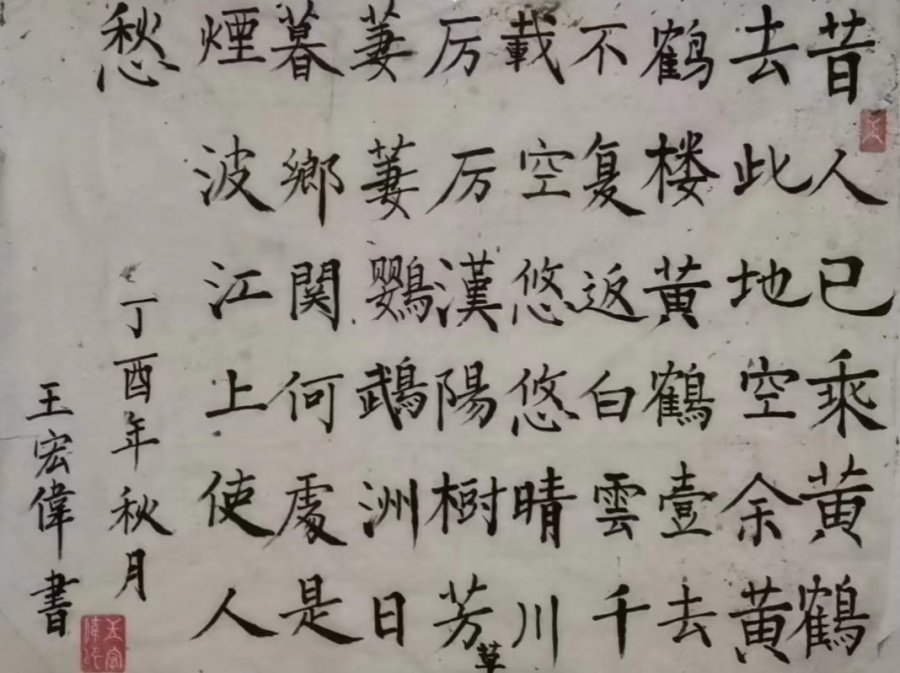 昔人已乘黄鶴
去此地空余黄
鶴楼黄鶴壹去
不复返白雲千
載空悠悠晴川
厉厉漢陽樹芳草
萋萋鹦鵡洲日
暮鄉関何處是
煙波江上使人
愁
丁酉年秋月
王宏偉書
王
王宏偉印